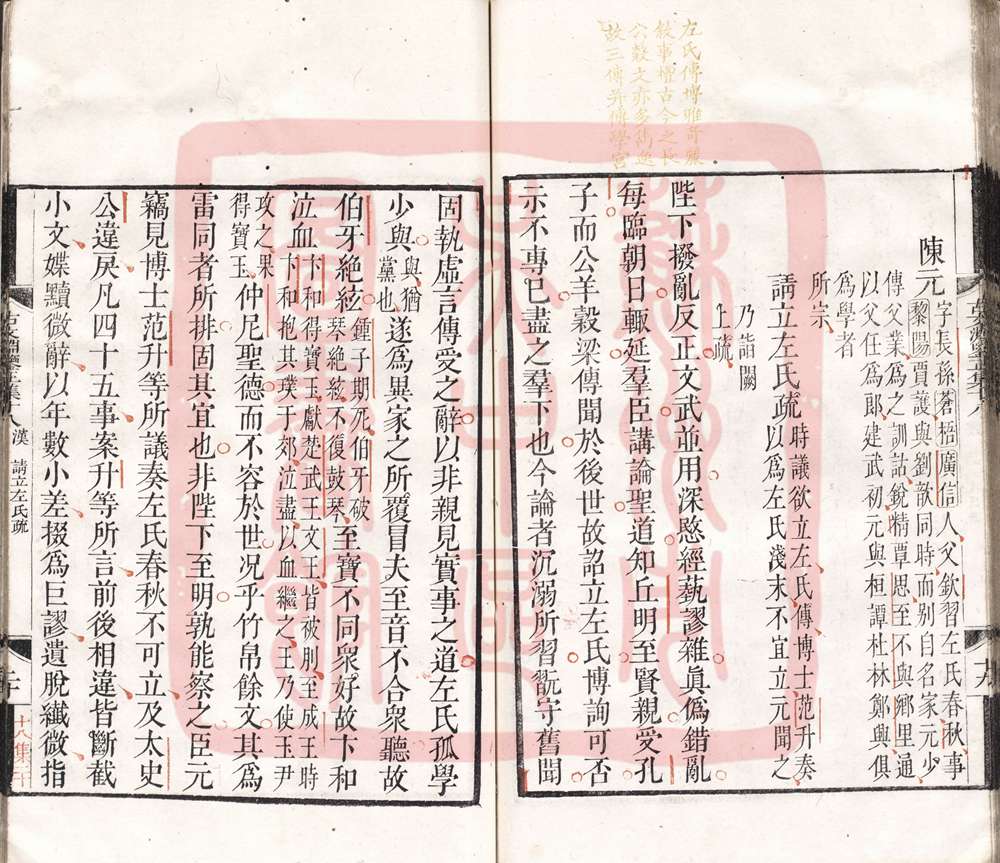 左氏傳博雅奇麗
敘事擅古今之長
公穀文亦多雋逸
故三傳并傳學宮
陳元
字長孫蒼梧廣信人父欽習左氏春秋事
黎陽賈護與劉歆同時而别自名家元少
傳父業爲之訓詁銳精覃思至不與鄉里通
以父任爲郎建武初元與桓譚杜林鄭興俱
爲學者
所宗
請立左氏疏
時議欲立左氏傳博士范升奏
以爲左氏淺末不宜立元聞之
乃詣闕
上疏
陛下撥亂反正文武並用深愍經蓺謬雜眞僞錯亂
每臨朝日輒延羣臣講論聖道知丘明至賢親受孔
子而公羊穀梁傳聞於後世故詔立左氏博詢可否
示不專已盡之羣下也今論者沉溺所習翫守舊聞
固執虛言傳受之辭以非親見實事之道左氏孤學
少與
與猶
黨也
遂爲異家之所覆冒夫至音不合衆聽故
伯牙絕絃
鍾子期死伯牙破
琴絶絃不復鼓琴
至寶不同衆好故卞和
泣血
卞和得寶玉獻楚武王文王皆被刖至成王時
卞和抱其璞于郊泣盡以血繼之王乃使玉尹
攻之果
得寶玉
仲尼聖德而不容於世况乎竹帛餘文其爲
雷同者所排固其宜也非陛下至明孰能察之臣元
竊見博士范升等所議奏左氏春秋不可立及太史
公違戾凡四十五事案升等所言前後相違皆斷截
小文媟黷微辭以年數小差掇爲巨謬遺脫纖微指
漢
請立左氏疏